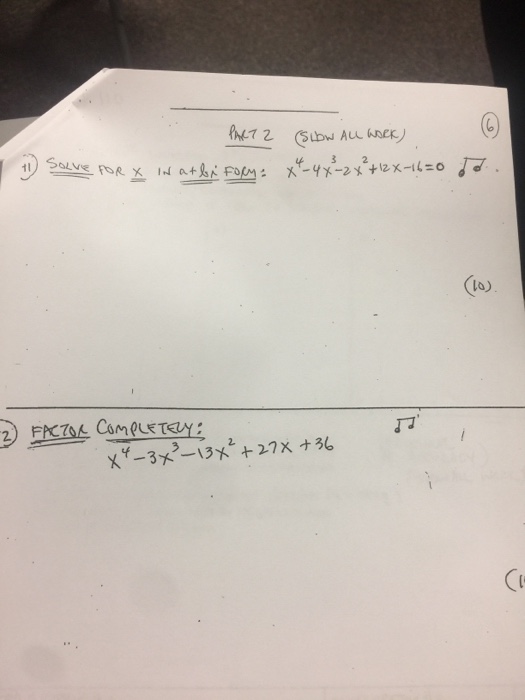 6
PART 2 (SHOW ALL WORK)
1) SOLVE FOR x IN a+bi FORM: x⁴-4x³-2x²+12x-16=0
(10)
2) FACTOR COMPLETELY:
x⁴-3x³-13x²+27x+36